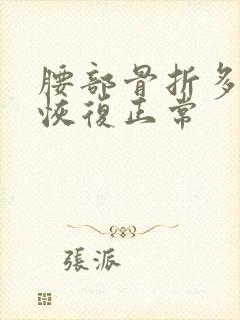 腰部骨折多
恢復正常
張派